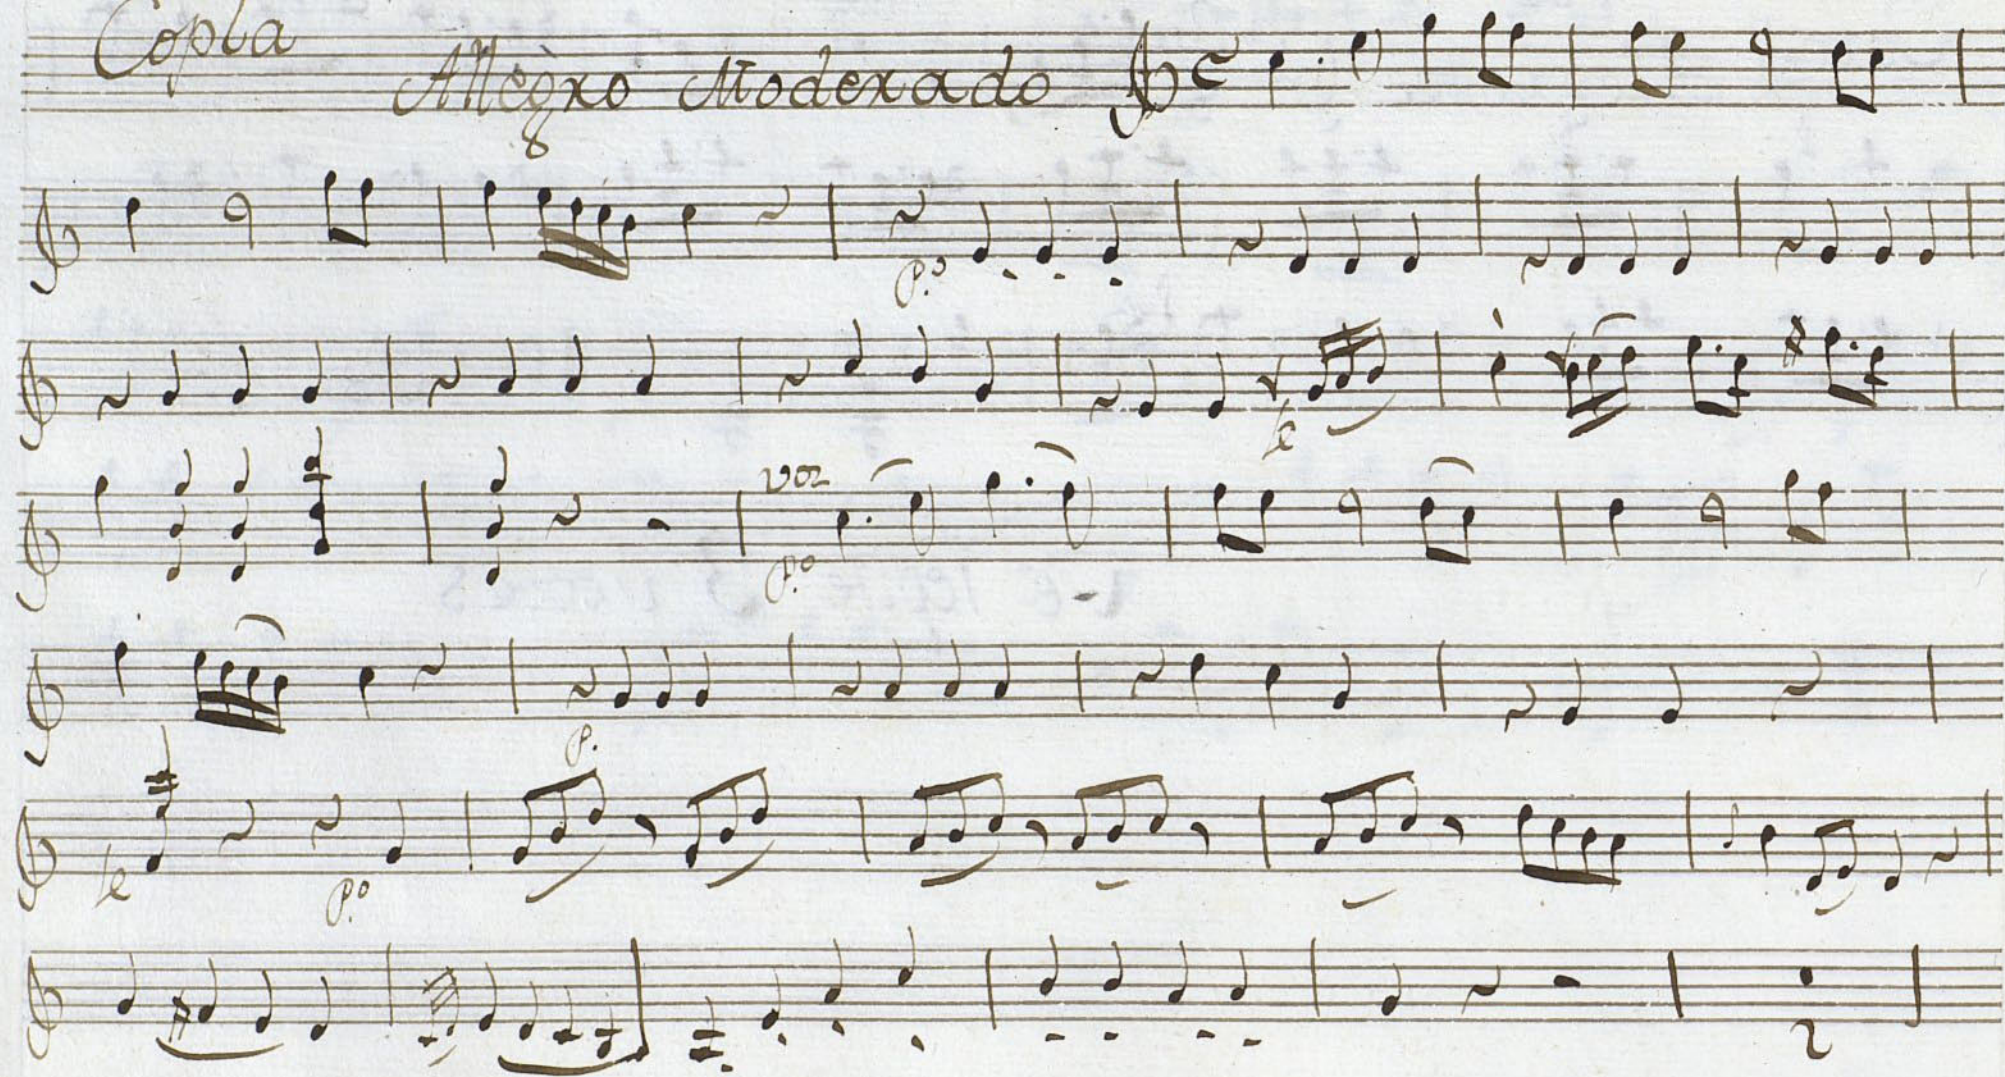 Copla
Allegro Moderado
p.o
fe
voz
p.o
p.
fe p.o
2